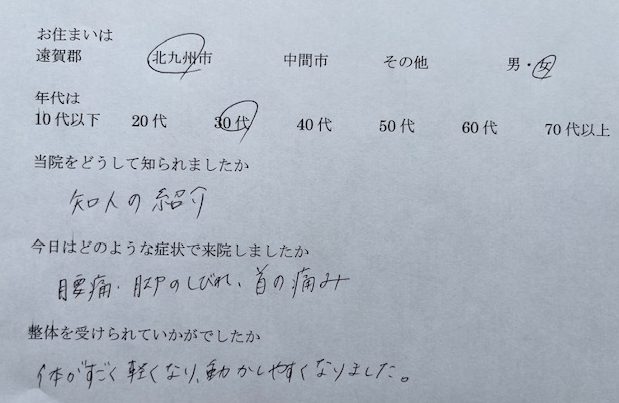 お住まいは
遠賀郡 北九州市 中間市 その他 男・女
年代は
10代以下 20代 30代 40代 50代 60代 70代以上
当院をどうして知られましたか
知人の紹介
今日はどのような症状で来院しましたか
腰痛、脚のしびれ、首の痛み
整体を受けられていかがでしたか
体がすごく軽くなり、動かしやすくなりました。